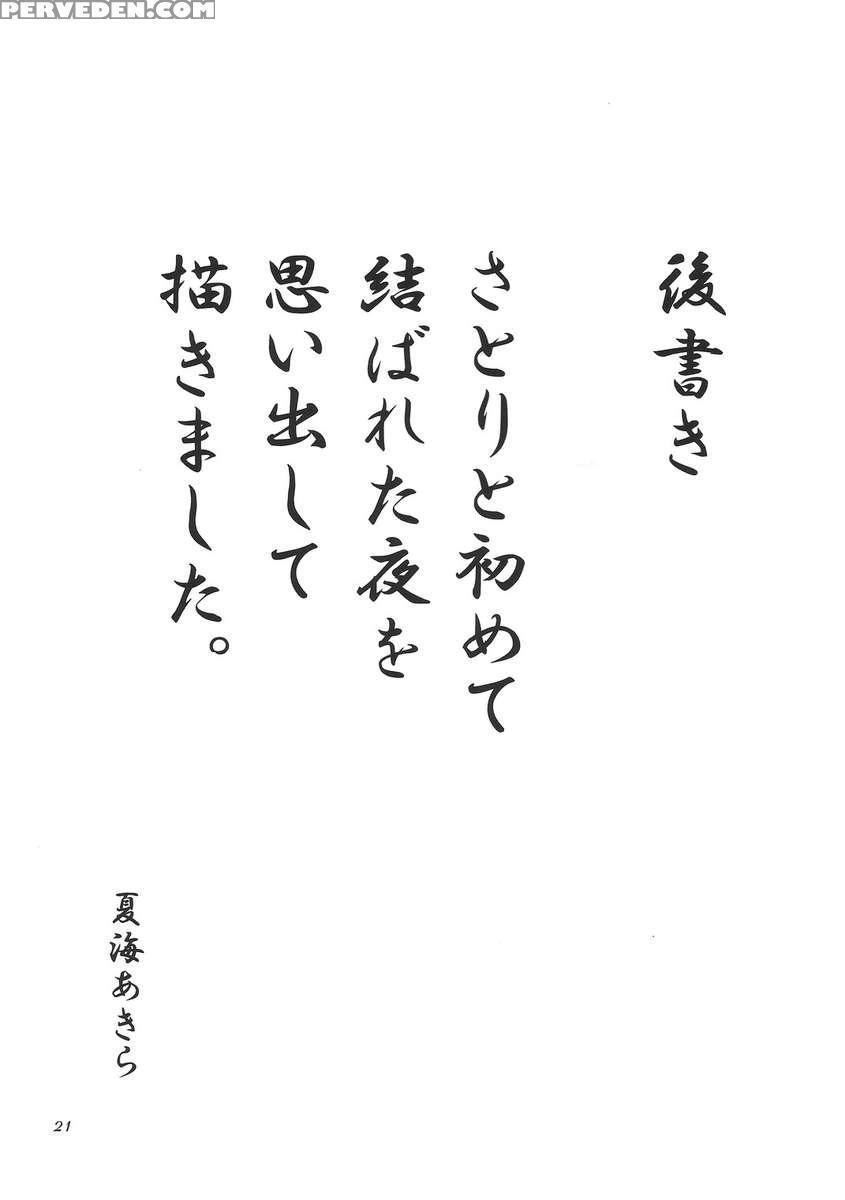 PERVEDEN.COM
後書き
さとりと初めて
結ばれた夜を
思い出して
描きました。
夏海あきら
21